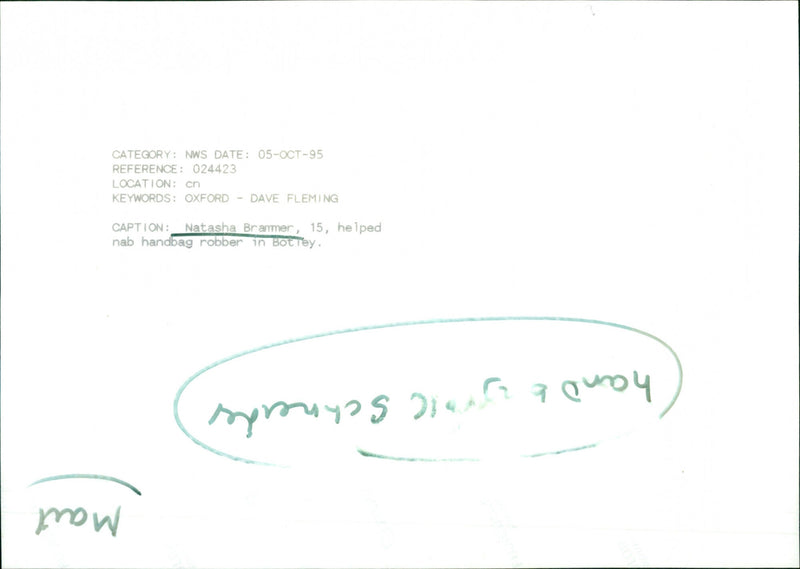 CATEGORY: NWS DATE: 05-OCT-95
REFERENCE: 024423
LOCATION: cn
KEYWORDS: OXFORD - DAVE FLEMING
CAPTION: Natasha Brammer, 15, helped
nab handbag robber in Botley.
Schneider
Mail